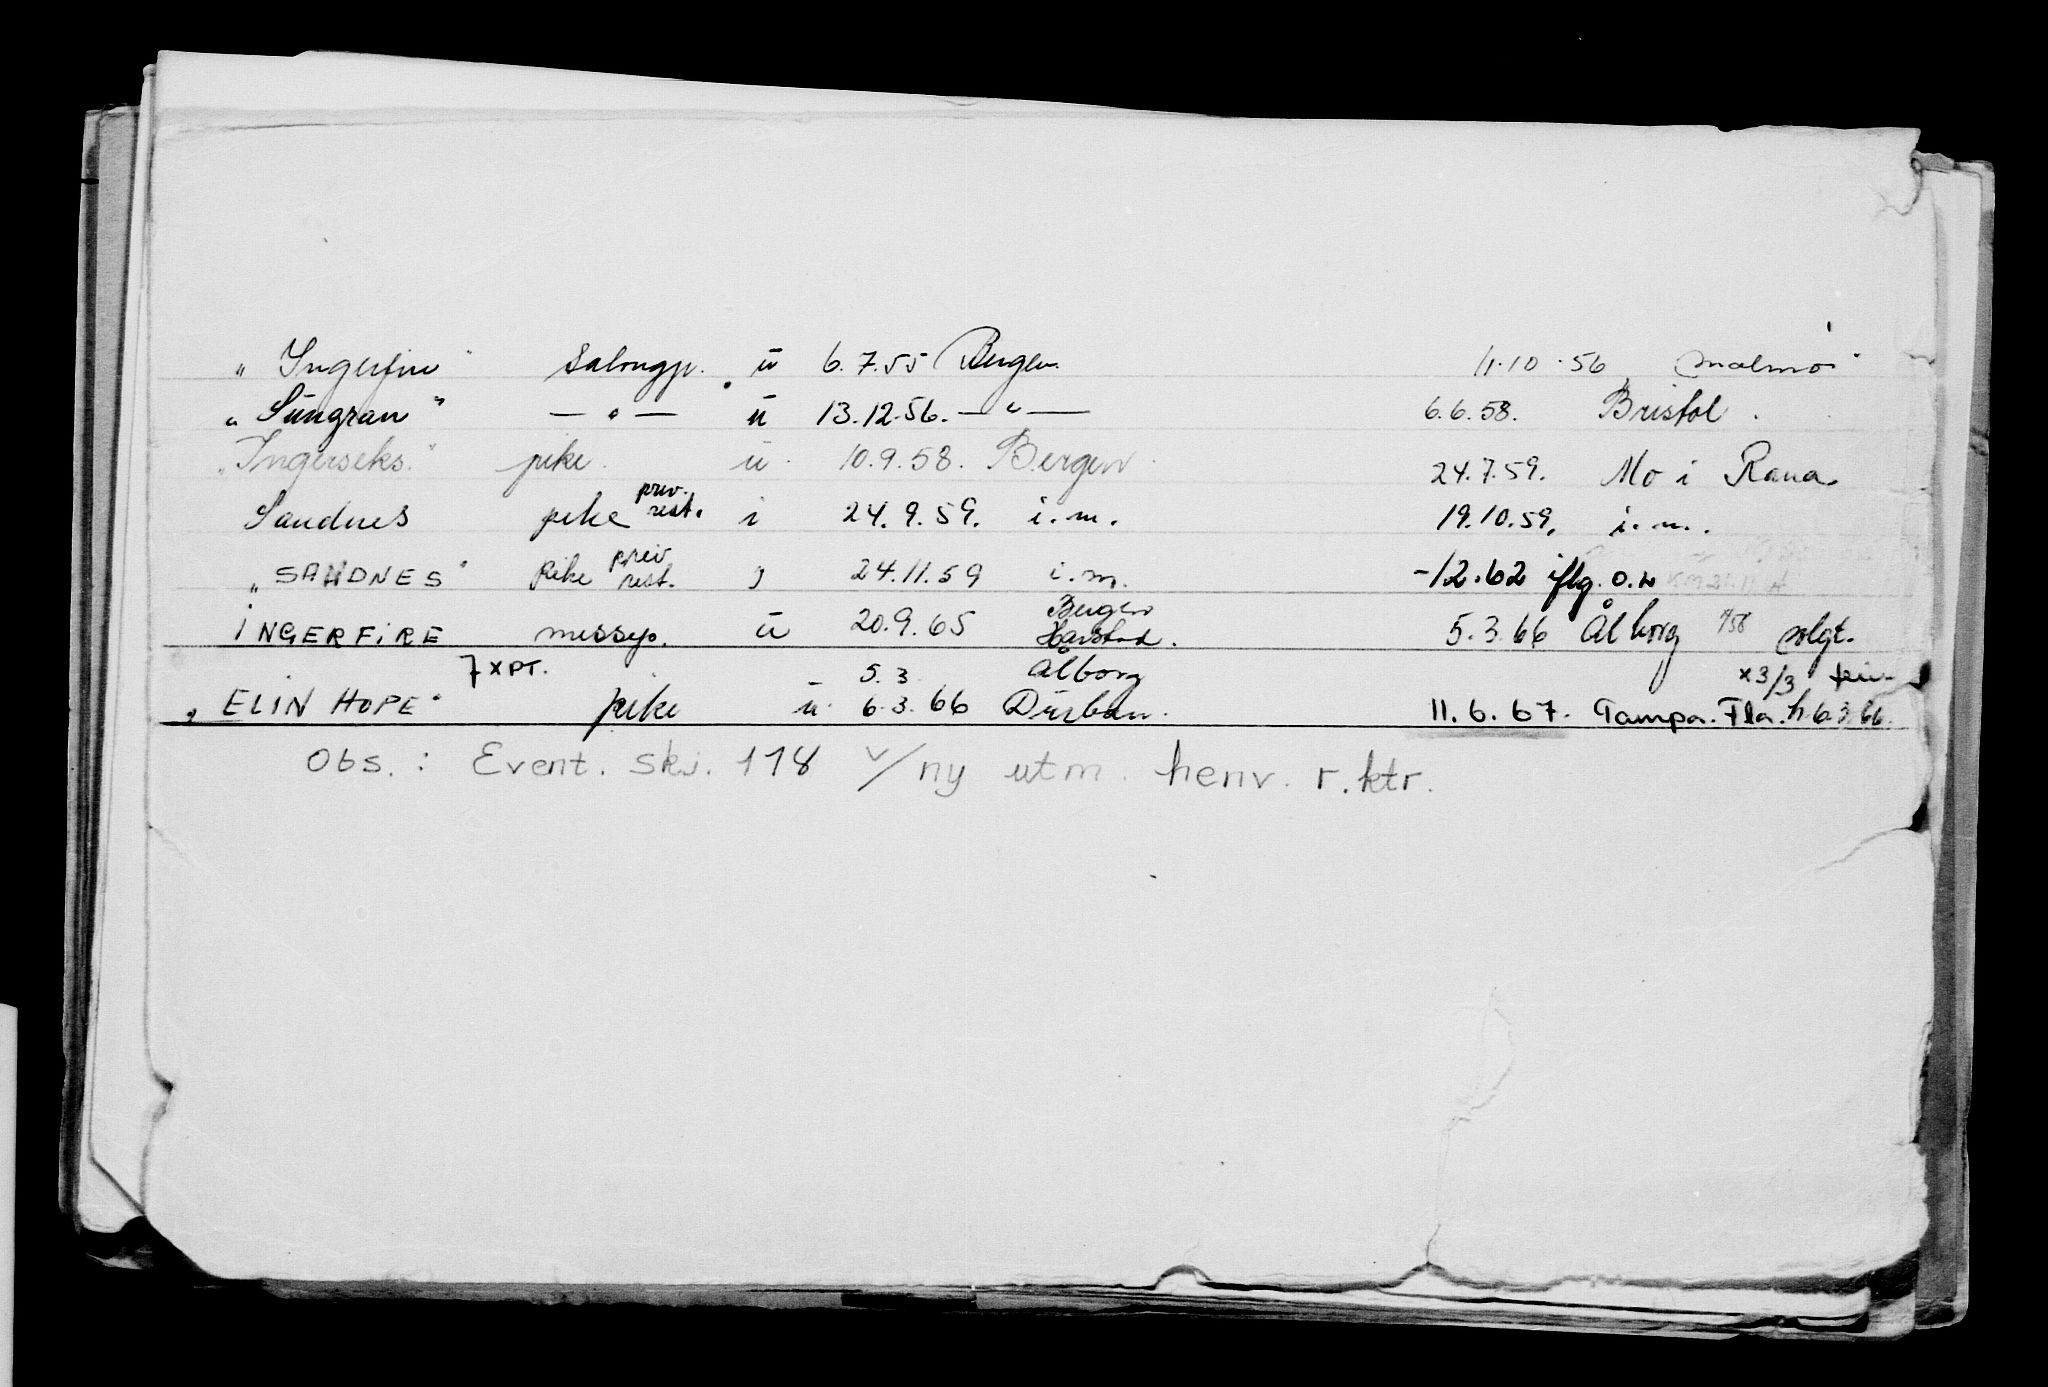 „ Ingerfin " Salongp. u 6.7.55 Bergen. 11.10.56 Malmö
„ Sungran " — " — u 13.12.56. — " — 6.6.58. Bristol.
„Ingerseks." pike. u. 10.9.58. Bergen. 24.7.59. Mo i Rana.
Sandnes pike priv. rest. i 24.9.59. i.m. 19.10.59. i.m.
„SANDNES" pike priv rest. 24.11.59 i.m. -12.62 iflg. o.
INGERFIRE messep. u 20.9.65 Bergen Harstad. 5.3.66 Ålborg solgt.
7 XPT. 5.3 Ålborg x3/3
„ ELIN HOPE" pike u. 6.3.66 Durban. 11.6.67. Tampa. Fla. h 6.3.66.
Obs. : Event. skj. 118 v/ny utm. henv. r.ktr.